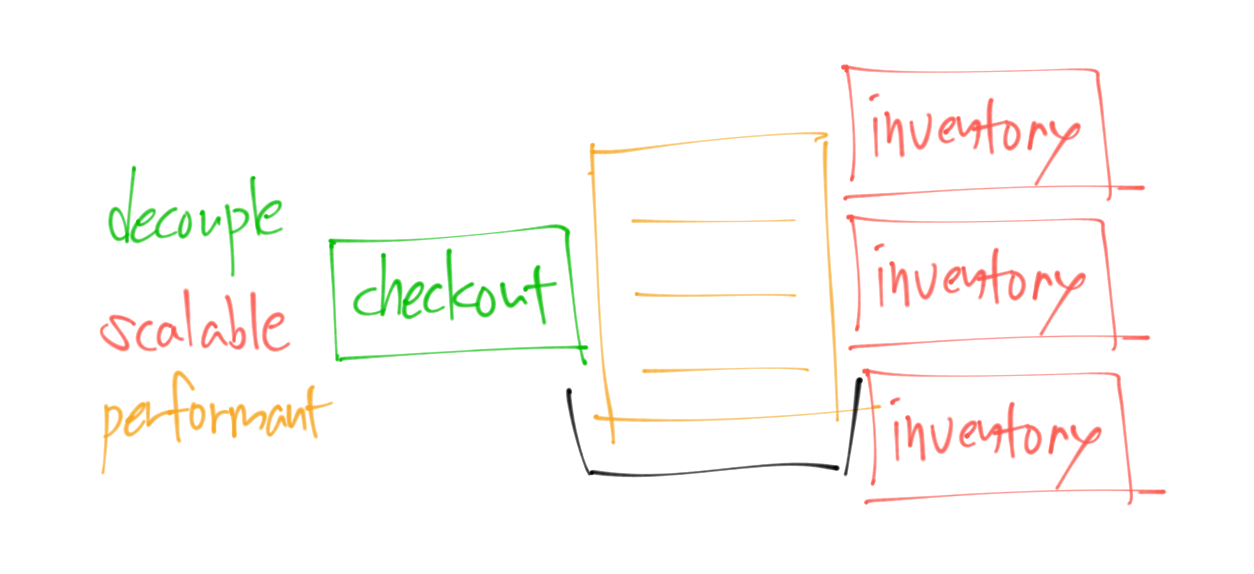 decouple
scalable
performant
checkout
inventory
inventory
inventory